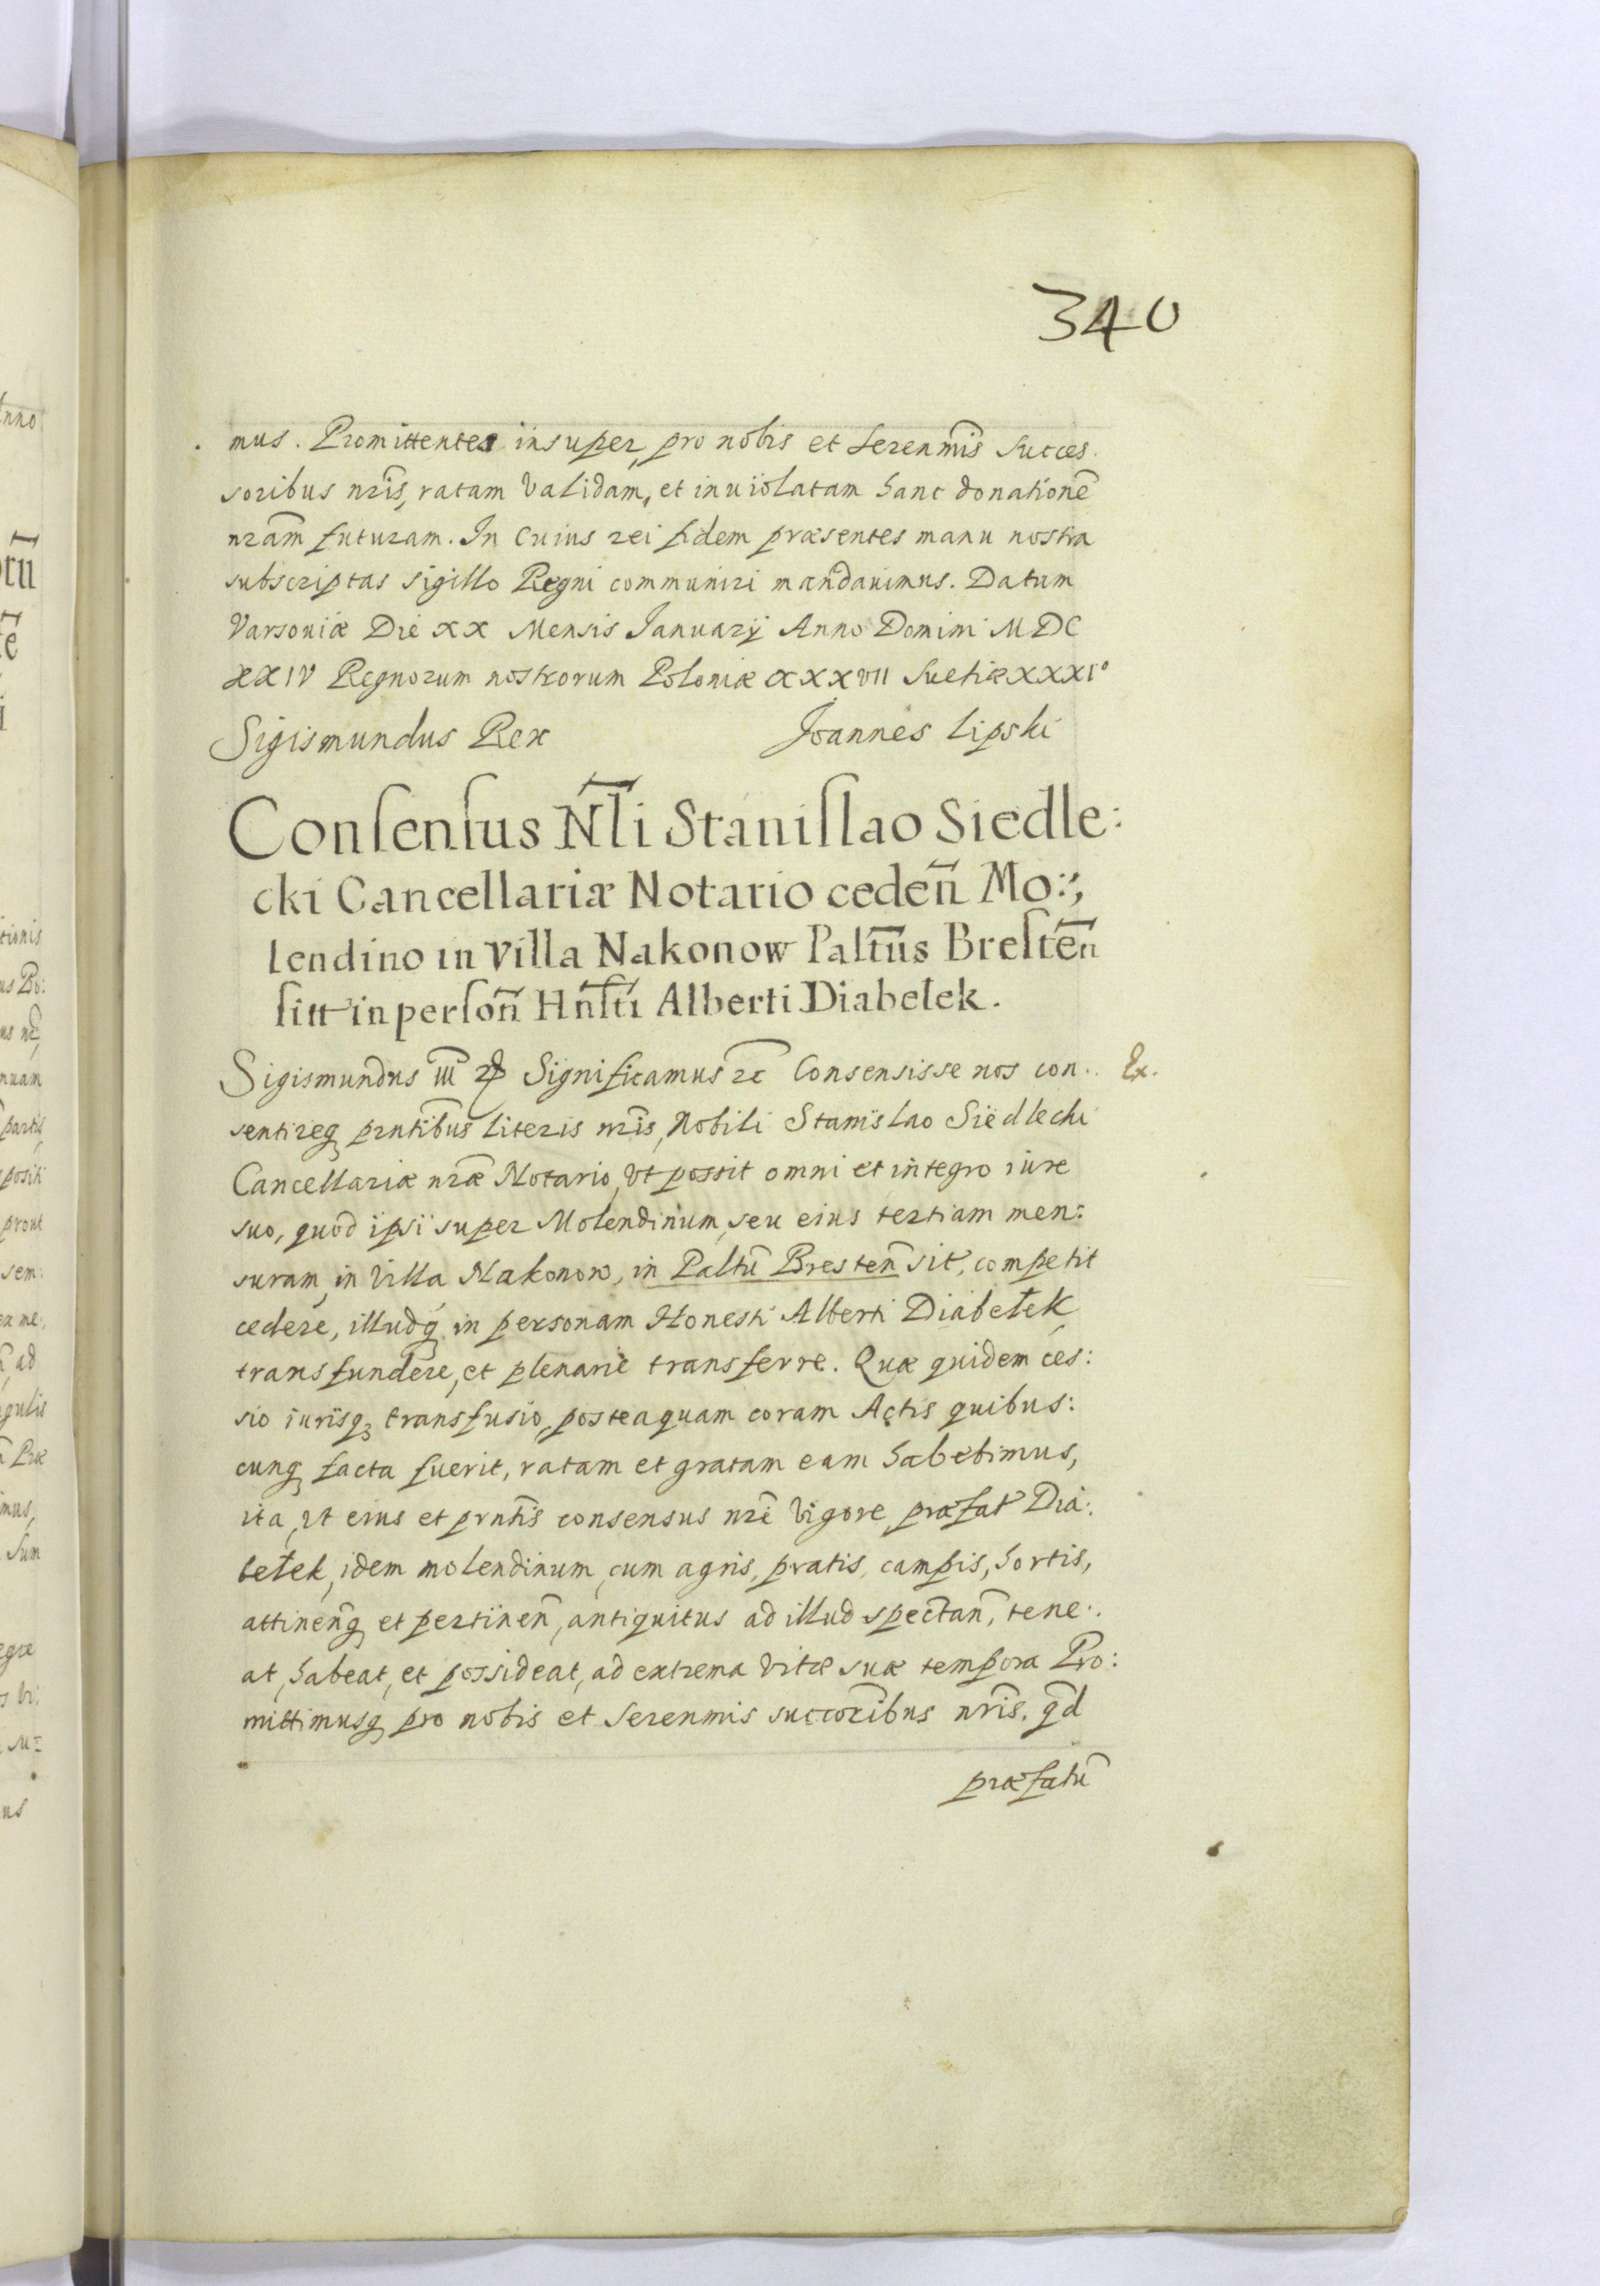 340
mus. Promittentes insuper, pro nobis et Serenm̃is Succes.
soribus nr̃is, ratam validam, et inuiolatam hanc donationẽ
nr̃am futuram. In cuius rei fidem præsentes manu nostra
subscriptas sigillo Regni communiri mandauimus. Datum
Varsouiæ Die XX Mensis Januarÿ Anno Domini MDC
XXIV Regnorum nostrorum Poloniæ XXXVII Suetiæ XXXI°
Sigismundus Rex Joannes Lipski
Conſenſus Nl̃i Staniſlao Siedle:
cki Cancellariæ Notario cedeñ Mo:,
lendino in villa Nakonow Palt̃us Breſteñ
ſitt in perſoñ Hñſti Alberti Diabełek.
Sigismundus III Significamus Consensisse nos con.. Ex.
sentireq prñtibus literis nr̃is, Nobili Stanislao Siedlecki
Cancellariæ nr̃æ Notario, vt possit omni et integro iure
suo, quod ipsi super Molendinum, seu eius tertiam men:
suram, in villa Nakonow, in Paltũ Bresteñ sit, competit
cedere, illudq in personam Honesti Alberti Diabełek
transfundere, et plenarie transferre. Quæ quidem ces:
sio iurisq transfusio, posteaquam coram Actis quibus:
cunq facta fuerit, ratam et gratam eam habebimus,
ita, vt eius et prñtis consensus nr̃i vigore præfat Dia:
bełek, idem molendinum, cum agris, pratis, campis, hortis,
attineñq et pertineñ, antiquitus ad illud spectañ, tene:.
at, habeat, et possideat, ad extrema vitæ suæ tempora Pro:
mittimusq pro nobis et Serenmis succoribus nr̃is. qd̃
præfatũ